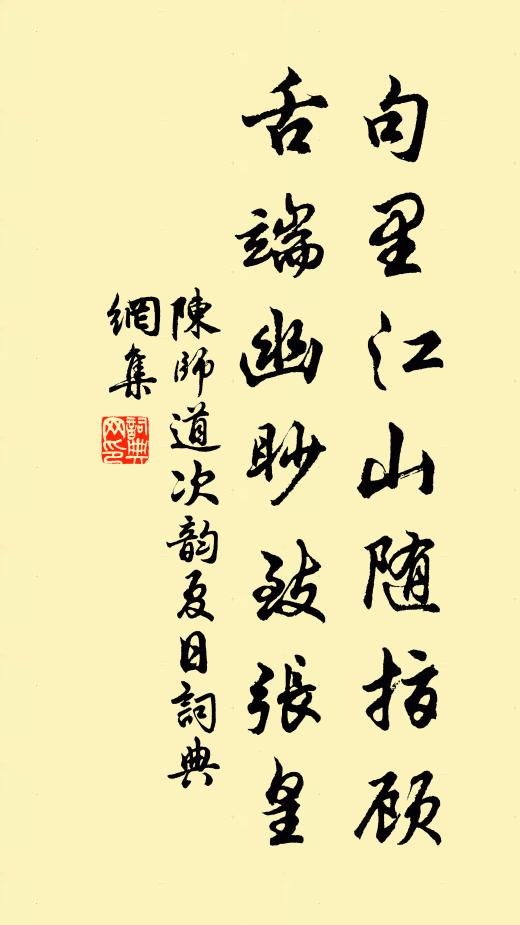 句里江山随指顾
舌端幽眇致張皇
陳師道次韵夏日詞典
網集
詞典
网印